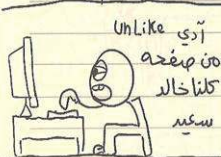 آدي unLike
من صفحه
كلنا خالد
سعيد